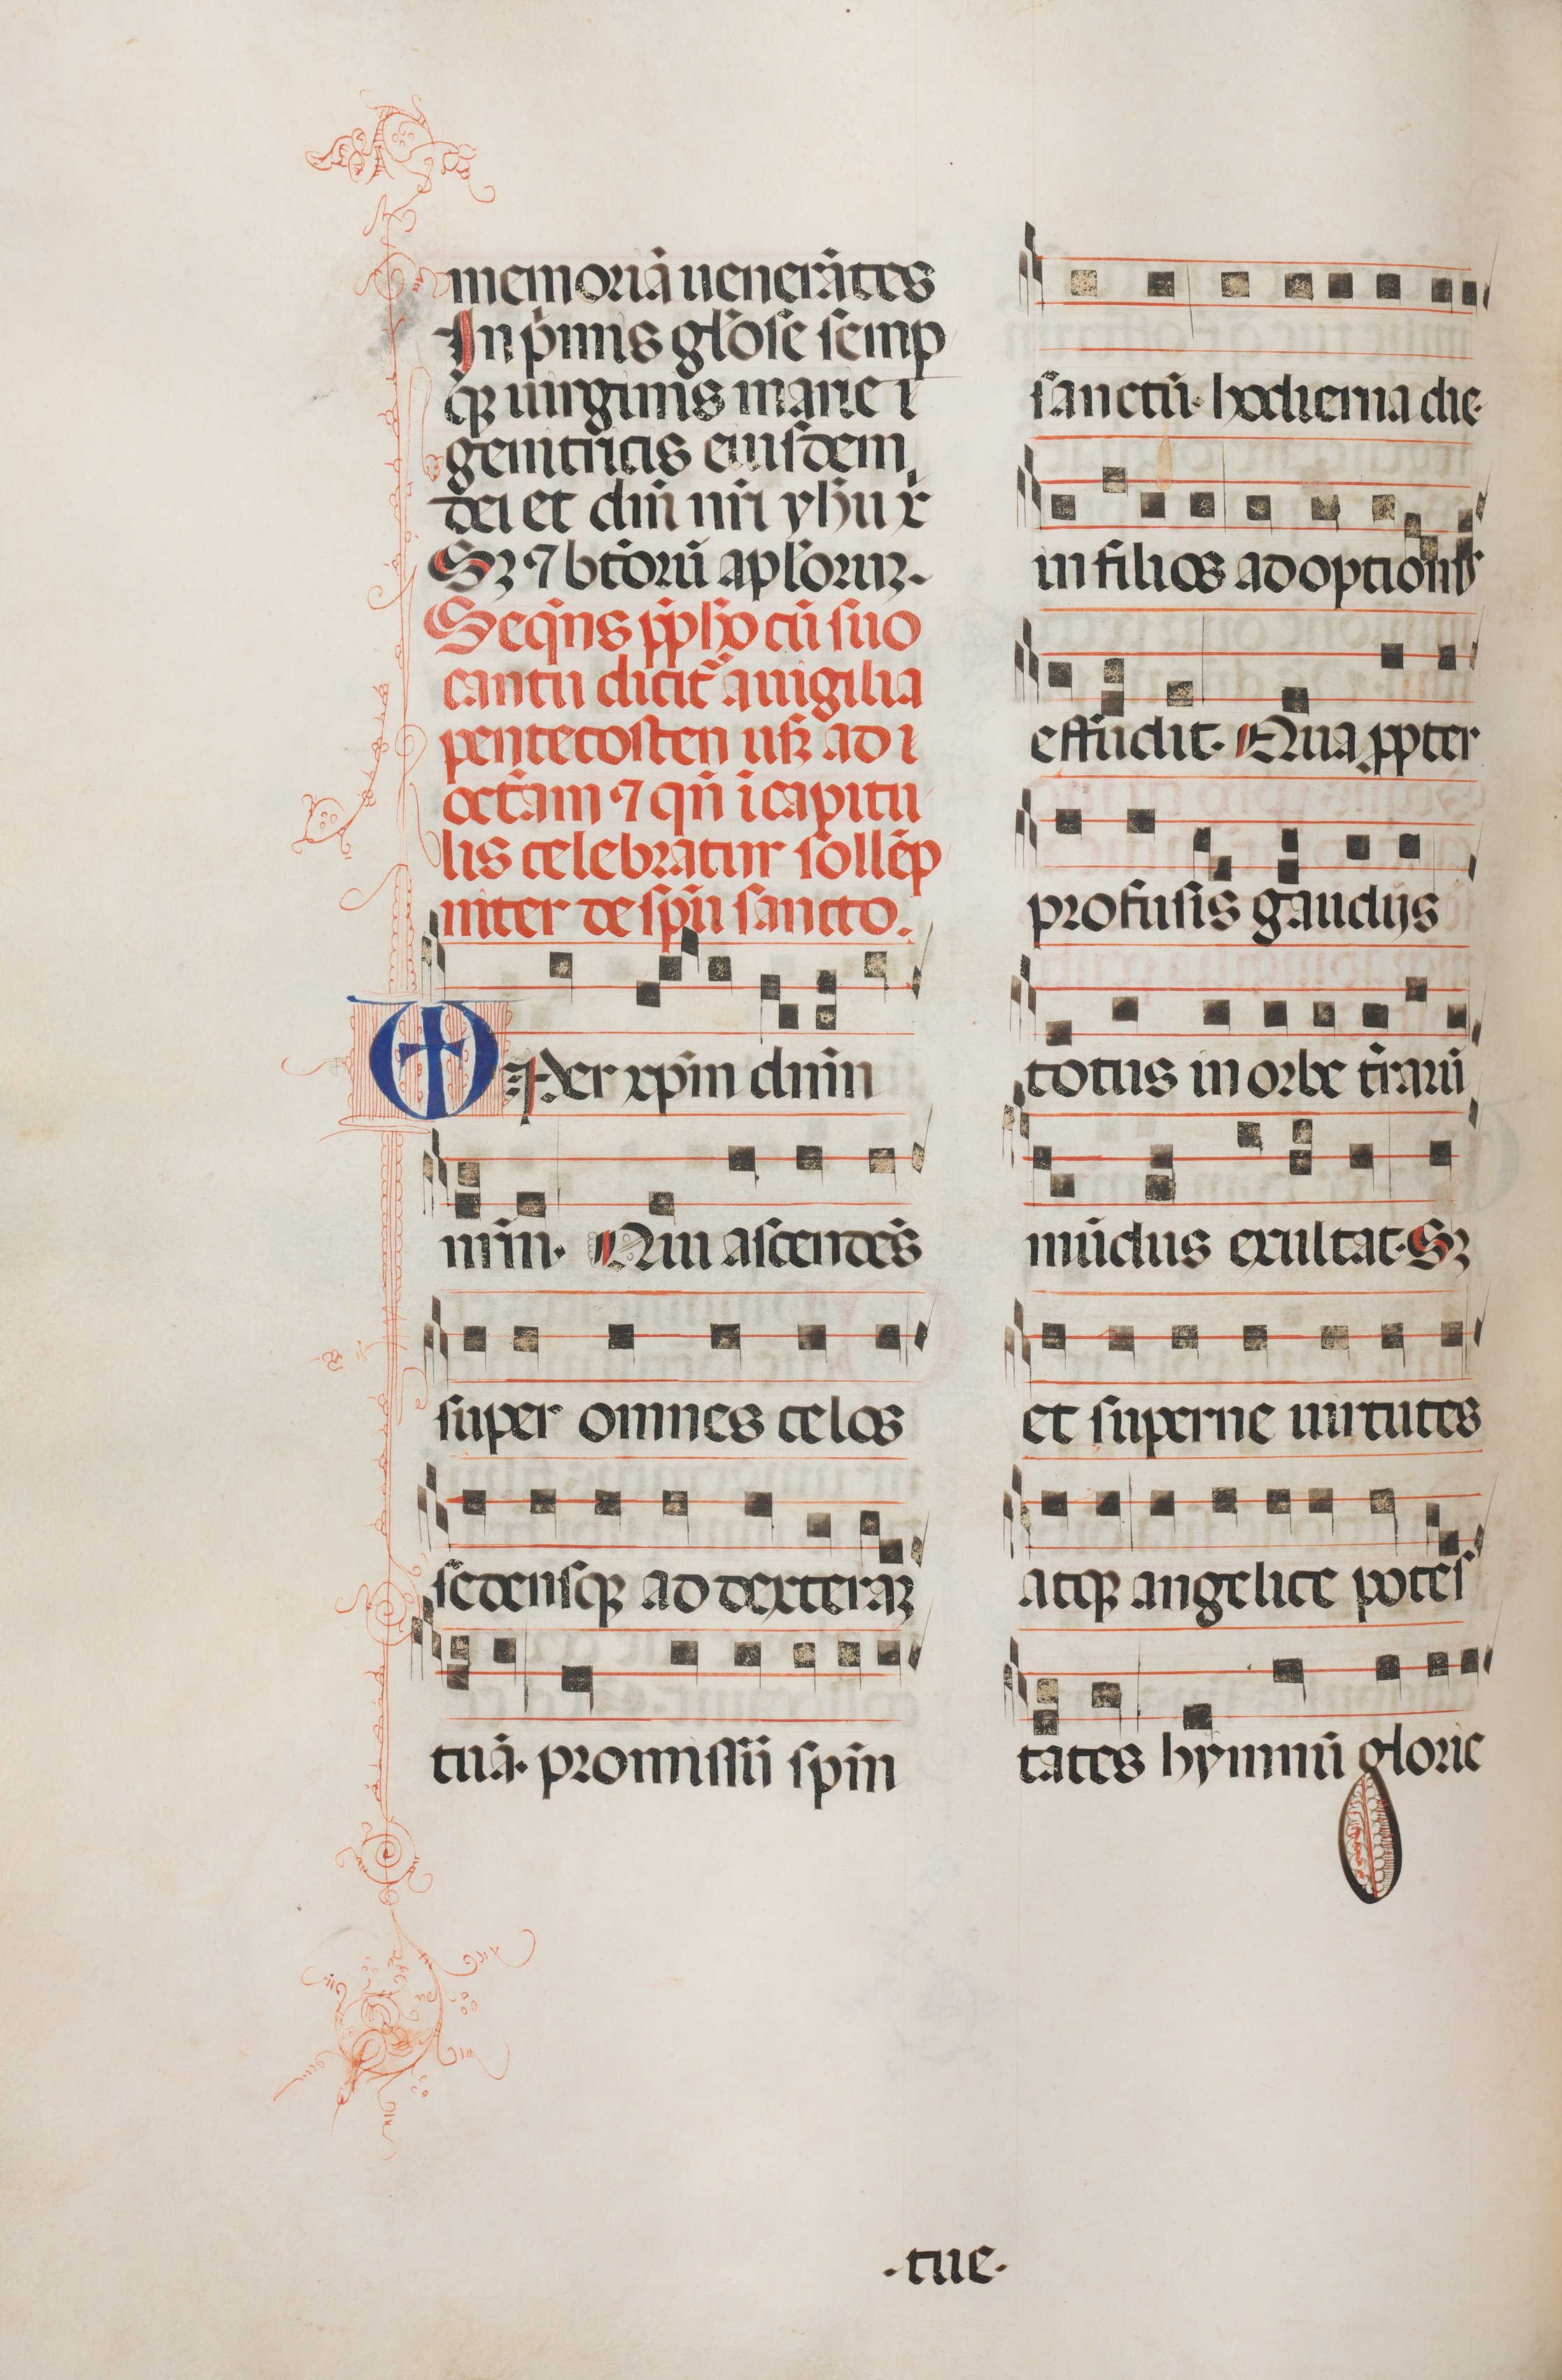 memoriā uenerātes
In pͥmis gl̄ose semp
qꝫ uirginis marie ⁊
genitricis eiusdem
dei et dn̄i nr̄i yħu x̄
Sꝫ ⁊ bt̄orū apl̄oruꝫ.
Seqn̄s p̄pħo cū suo
cantu dicit᷑ a uigilia
pentecosten usqꝫ ad ı
oct̄am ⁊ qn̄ ī capitu
lis celebratur sollēp
niter de sp̄u sancto.
Per xp̄m dn̄m
nr̄m. Qui ascendēs
super omnes celos
sedensqꝫ ad dexteraꝫ
tuā. promissū sp̄m
sanctū. hodierna die.
in filios adoptionis
effudit. Qua ꝓpter
profusis gaudijs
totus in orbe tr̄arū
mūdus exultat. Sꝫ
et superne uirtutes
atqꝫ angelice potes
tates hymnū glorie
.tue.